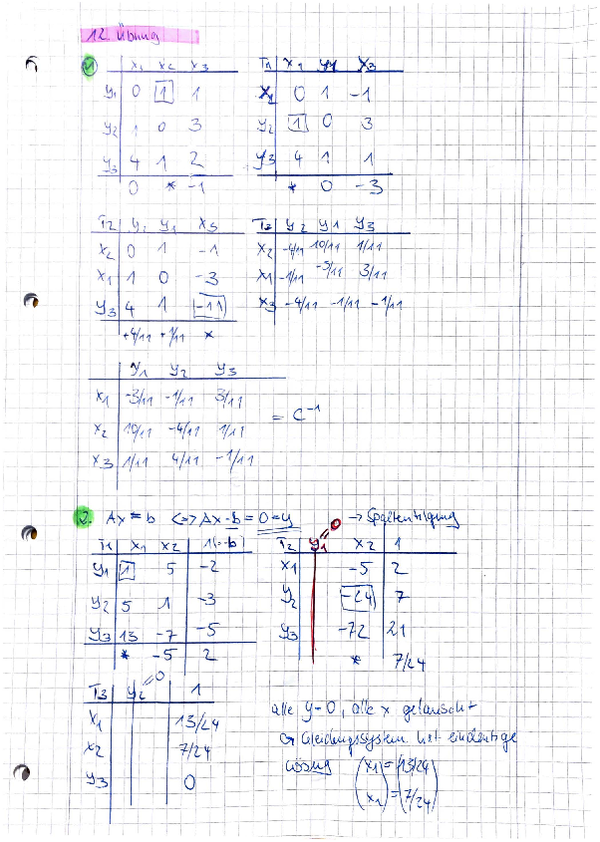 12 Übung
1 x1 x2 x3
y1 0 1 1
y2 1 0 3
y3 4 1 2
0 * -1
T1 x1 y1 x3
x2 0 1 -1
y2 1 0 3
y3 4 1 1
* 0 -3
T2 y2 y1 x3
x2 0 1 -1
x1 1 0 -3
y3 4 1 -11
+4/11 +1/11 *
T3 y2 y1 y3
x2 -4/11 10/11 1/11
x1 -1/11 -3/11 3/11
x3 -4/11 -1/11 -1/11
y1 y2 y3
x1 -3/11 -1/11 3/11
x2 10/11 -4/11 1/11
x3 1/11 4/11 -1/11
= C⁻¹
2. Ax = b <=> Ax - b = 0 = y
→ Spaltentilgung
T1 x1 x2 1(=-b)
y1 1 5 -2
y2 5 1 -3
y3 13 -7 -5
* -5 2
T2 y1 = 0 x2 1
x1 -5 2
y2 -24 7
y3 -72 21
* 7/24
T3 y2 = 0 1
x1 13/24
x2 7/24
y3 0
alle y=0, alle x getauscht
↪ Gleichungssystem hat eindeutige
Lösung (x1) = (13/24)
(x2) = (7/24)